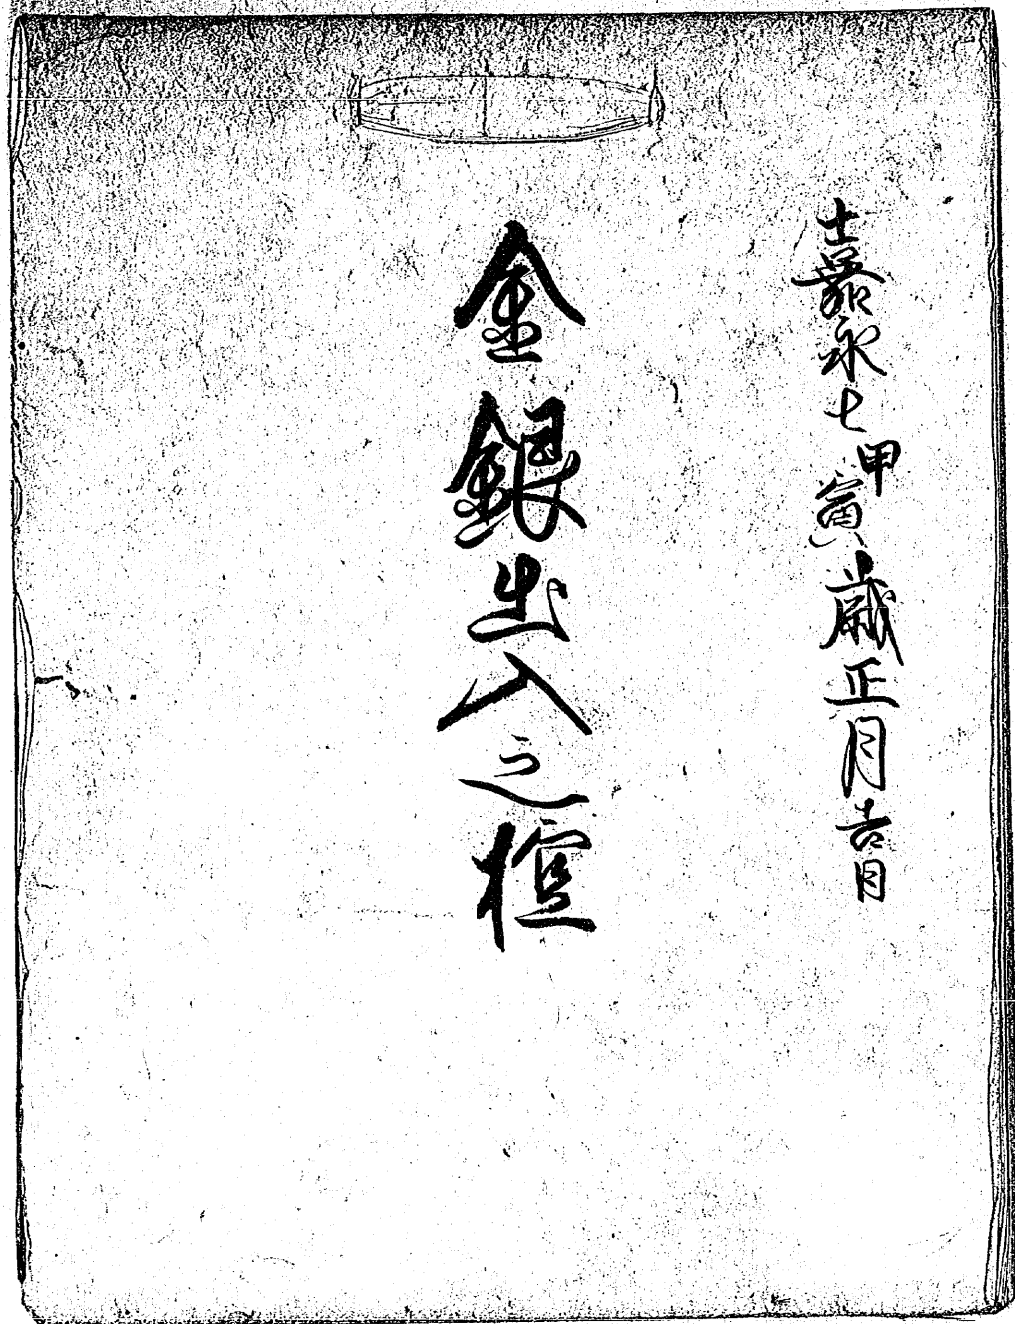 嘉永七甲寅歳正月吉日
金銀出入之控